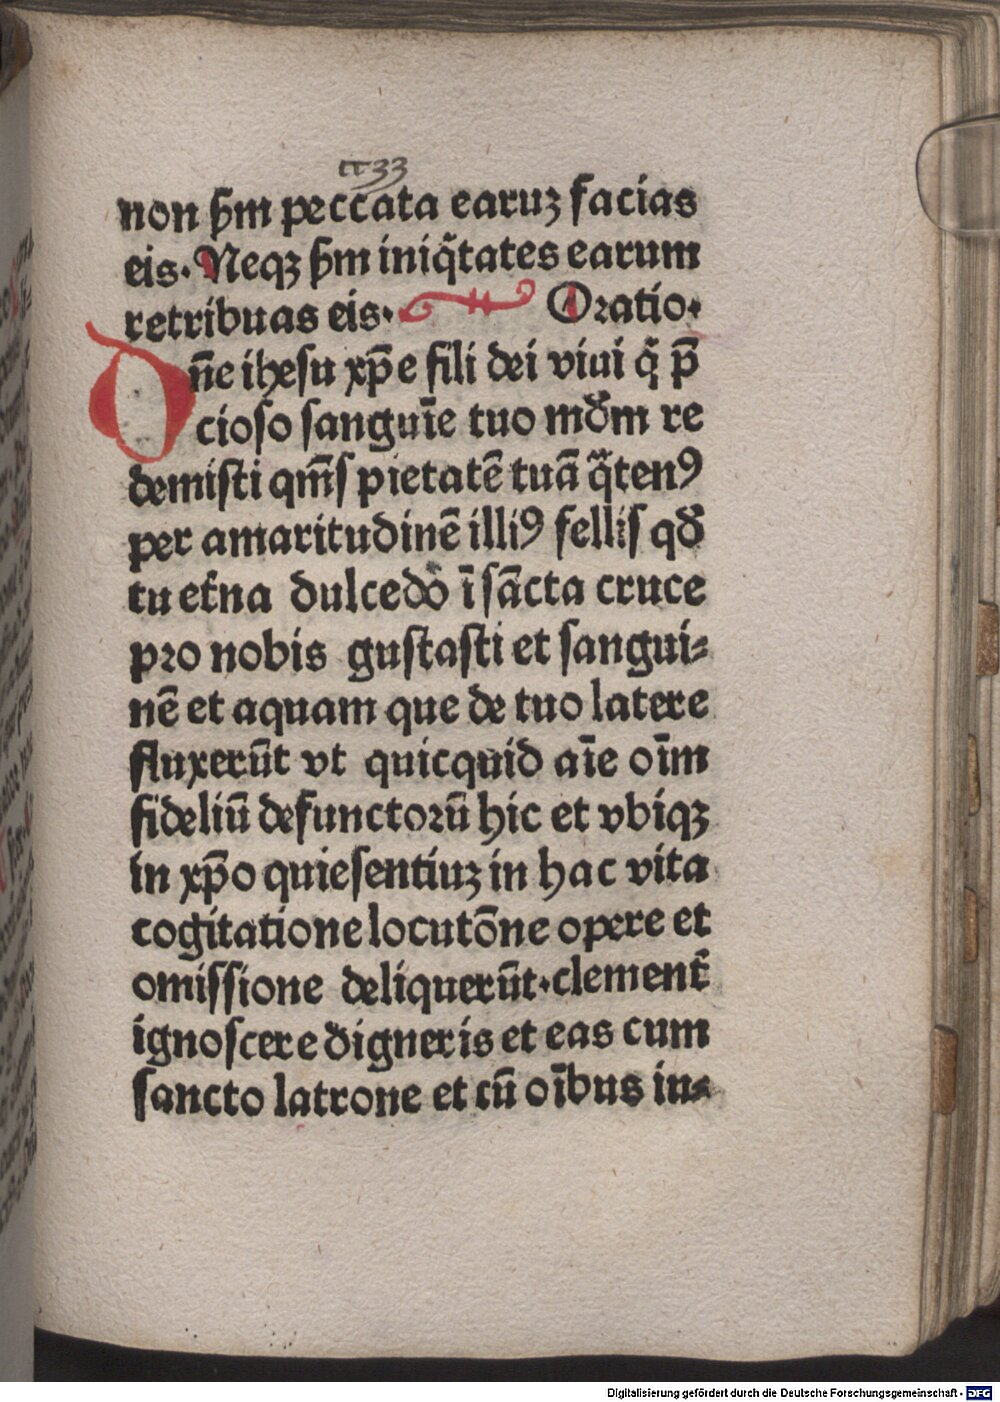 cc33
non ẜm peccata earuꝫ facias
eis. Neqꝫ ẜm iniq̃tates earum
retribuas eis. Oratio.
Dn̄e ihesu xp̄e fili dei viui q̃ p̄
cioso sanguīe tuo mūdm re
demisti qm̄s pietatē tuā q̃tenꝰ
per amaritudinē illiꝰ fellis qđ
tu et̄na dulcedo ī sācta cruce
pro nobis gustasti et sangui⸗
nē et aquam que de tuo latere
fluxerūt vt quicquid aīe oīm
fideliū defunctorū hic et vbiqꝫ
in xp̄o quiesentiuꝫ in hac vita
cogitatione locutōne opere et
omissione deliquerūt.clement̄
ignoscere digneris et eas cum
sancto latrone et cū oībus in⸗
Digitalisierung gefördert durch die Deutsche Forschungsgemeinschaft - DFG